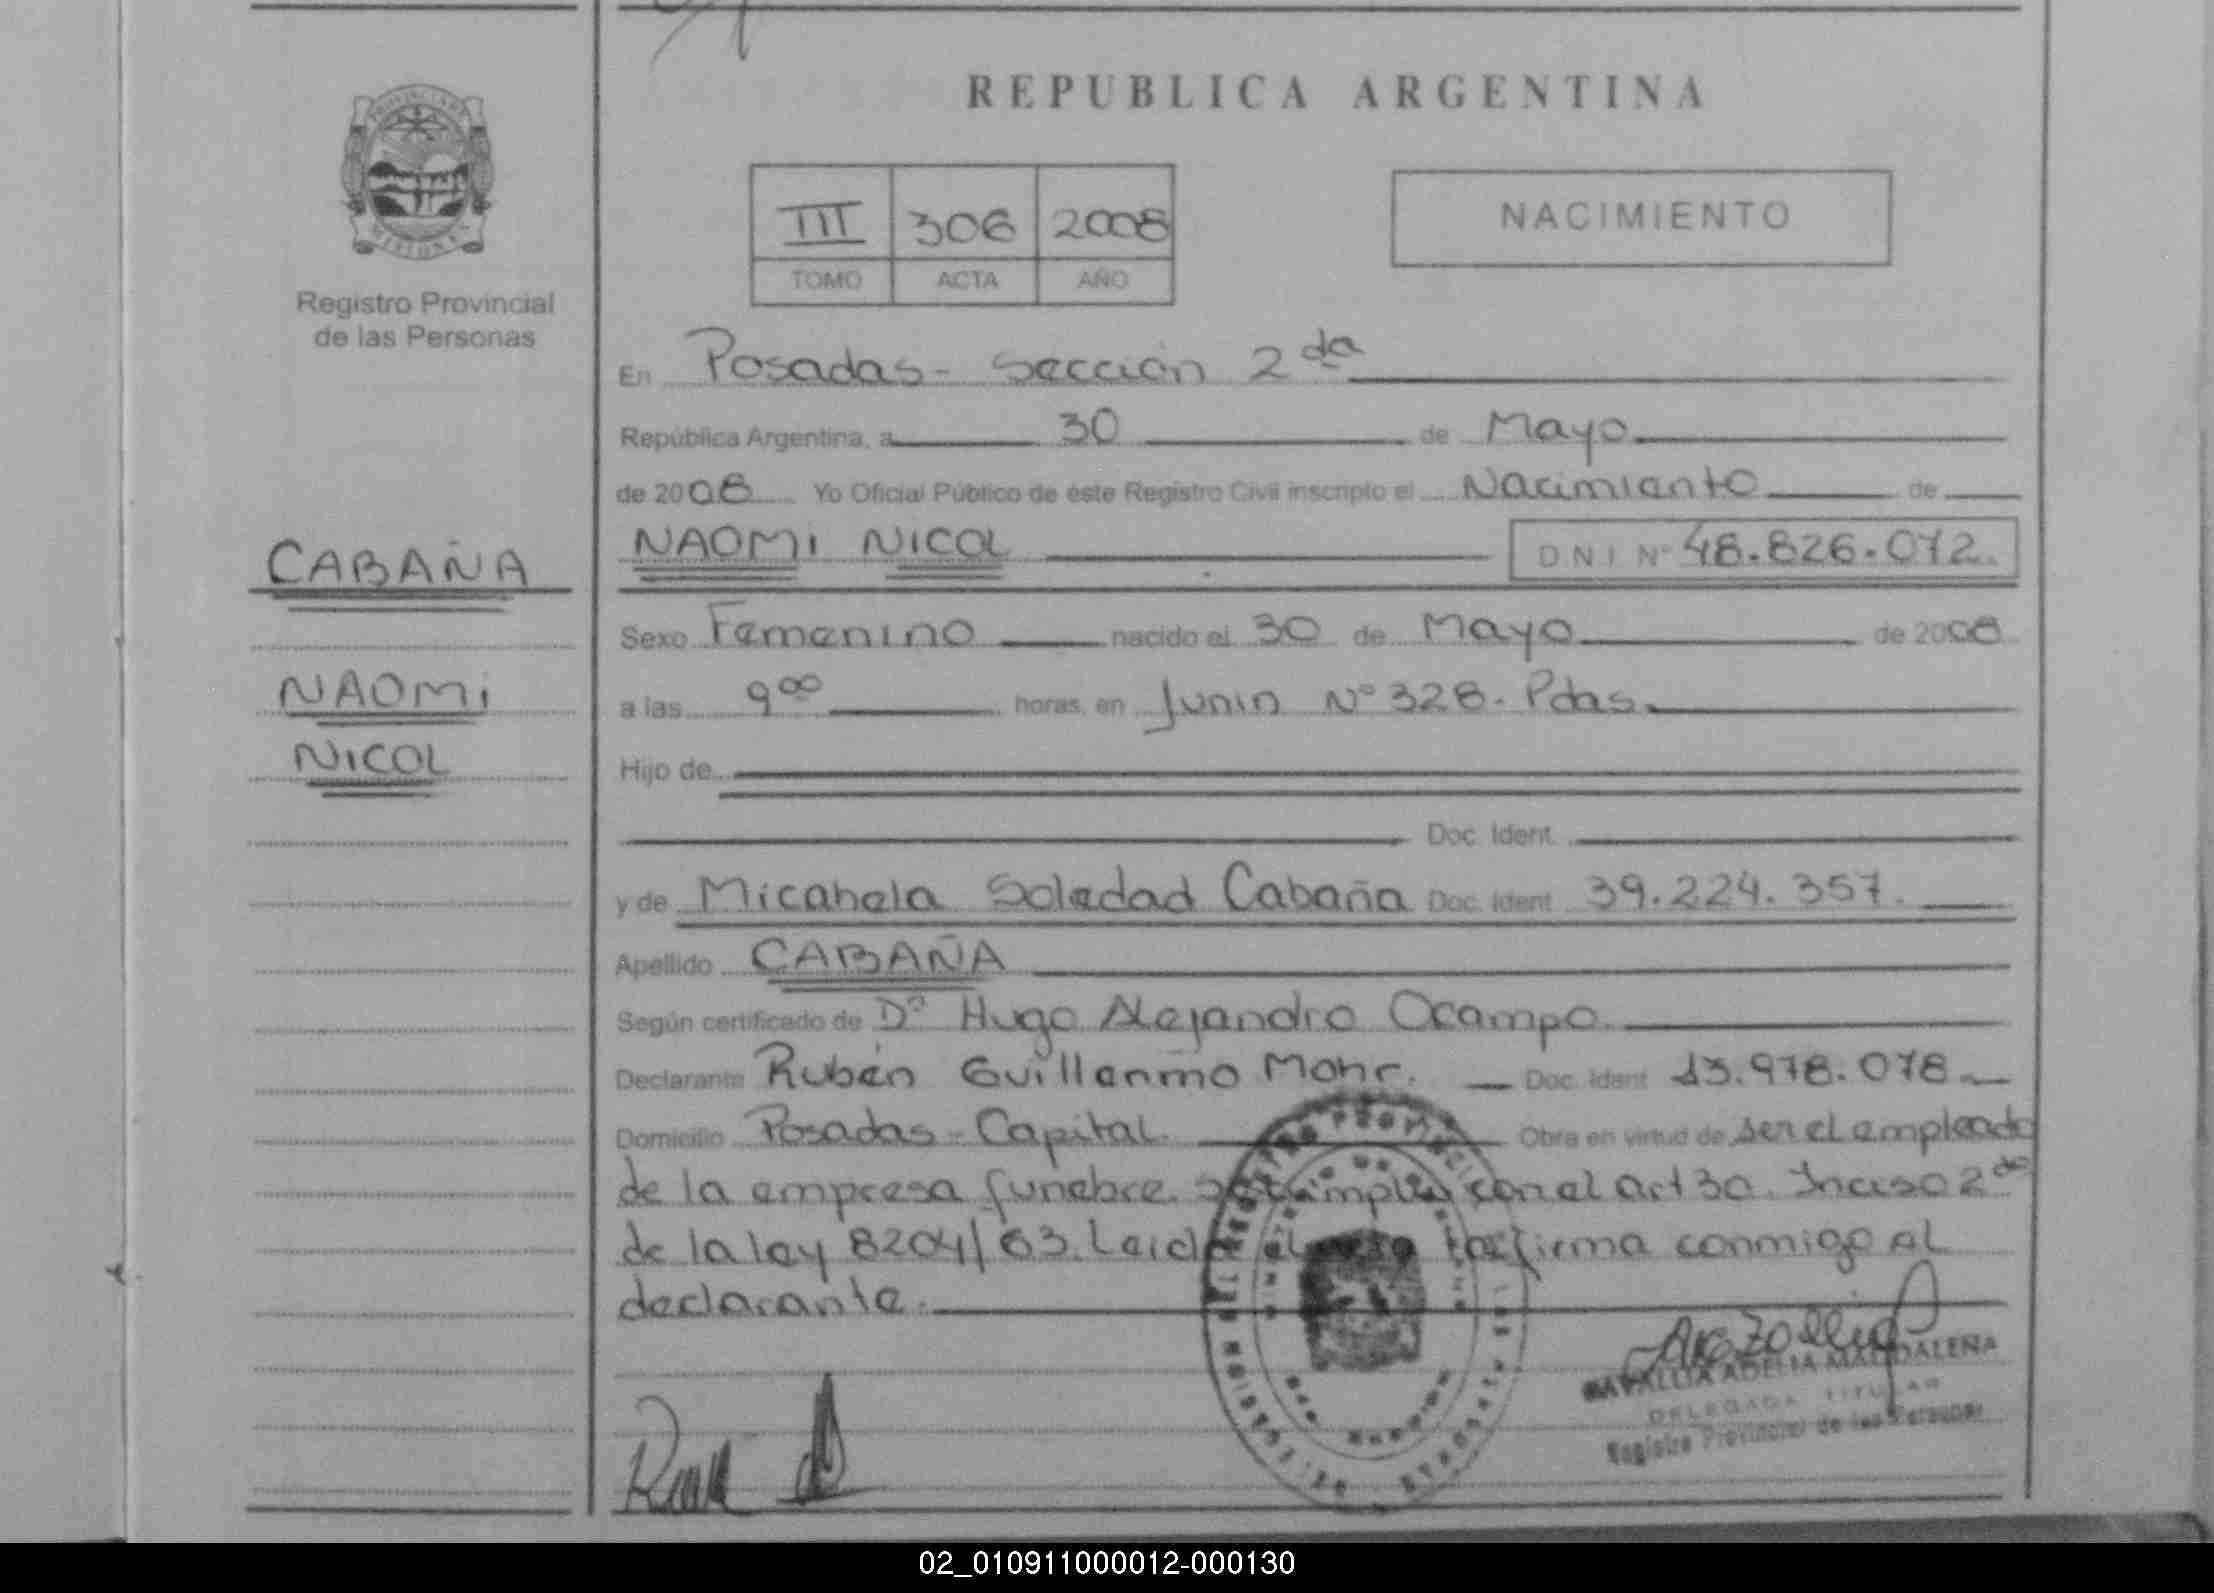 REPUBLICA ARGENTINA
PROVINCIA DE MISIONES
Registro Provincial
de las Personas
III 306 2008
TOMO ACTA AÑO
NACIMIENTO
En Posadas - Sección 2da
República Argentina, a 30 de Mayo
de 2008 Yo Oficial Público de éste Registro Civil inscripto el Nacimiento de
CABAÑA
NAOMI
NICOL
NAOMI NICOL D.N.I. Nº 48.826.072.
Sexo Femenino nacido el 30 de Mayo de 2008
a las 900 horas, en Junin Nº 328. Pdas.
Hijo de
Doc. Ident.
y de Micahela Soledad Cabaña Doc. Ident. 39.224.357.
Apellido CABAÑA
Según certificado de Dº Hugo Alejandro Ocampo.
Declarante Rubén Guillermo Mohr. Doc. Ident. 13.978.078
Domicilio Posadas - Capital. Obra en virtud de ser el empleado
de la empresa funebre. Se cumple con el art 30. Inciso 2do
de la ley 8204/63. Leida el acta la firma conmigo el
declarante.
ADELIA MAGDALENA
DELEGADA TITULAR
Registro Provincial de las Personas
02_010911000012-000130